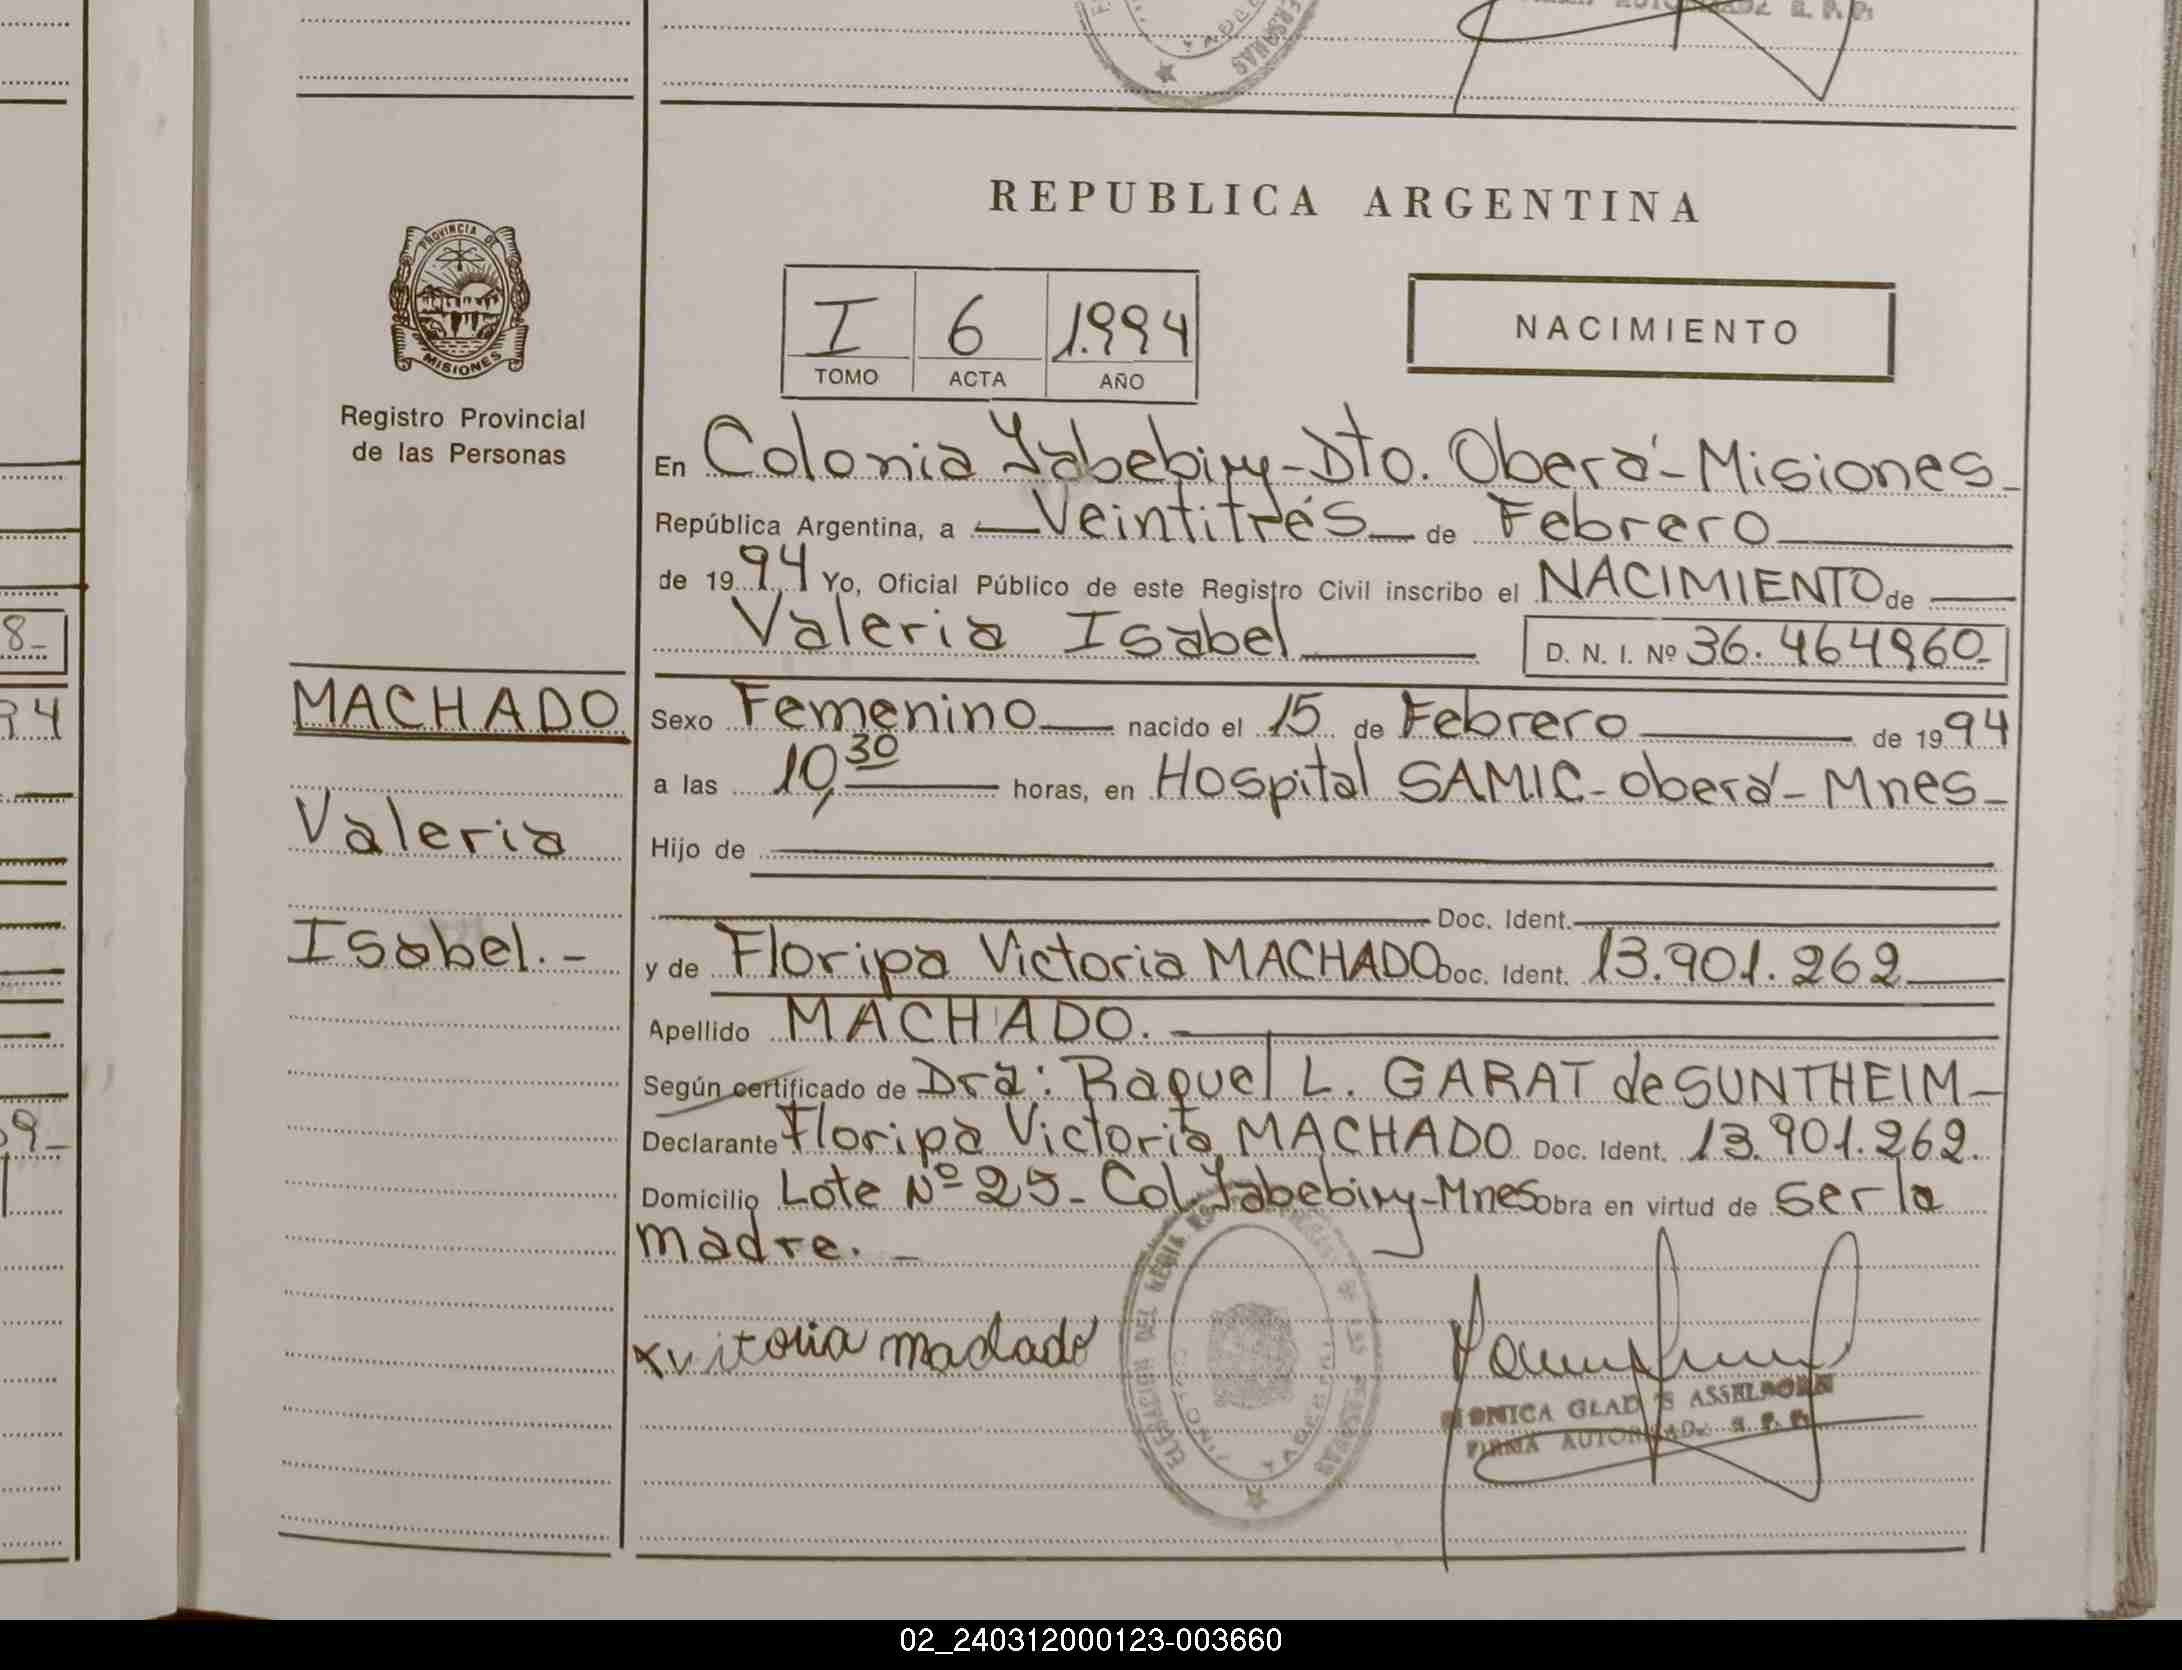 REPUBLICA ARGENTINA
PROVINCIA DE
MISIONES
Registro Provincial
de las Personas
I 6 1.994
TOMO ACTA AÑO
NACIMIENTO
En Colonia Yabebiry-Dto. Oberá-Misiones-
República Argentina, a Veintitrés de Febrero
de 1994 Yo, Oficial Público de este Registro Civil inscribo el NACIMIENTO de
Valeria Isabel D. N. I. Nº 36.464960-
MACHADO
Valeria
Isabel.-
Sexo Femenino nacido el 15 de Febrero de 1994
a las 10,30 horas, en Hospital SAMIC-Oberá-Mnes-
Hijo de
Doc. Ident.
y de Floripa Victoria MACHADO Doc. Ident. 13.901.262
Apellido MACHADO.
Según certificado de Dra: Raquel L. GARAT de SUNTHEIM-
Declarante Floripa Victoria MACHADO Doc. Ident. 13.901.262.
Domicilio Lote Nº 25- Col Yabebiry-Mnes Obra en virtud de ser la
madre.-
x vitoria machado
MONICA GLADYS ASSELBORN
FIRMA AUTORIZADA R. P. P.
02_240312000123-003660